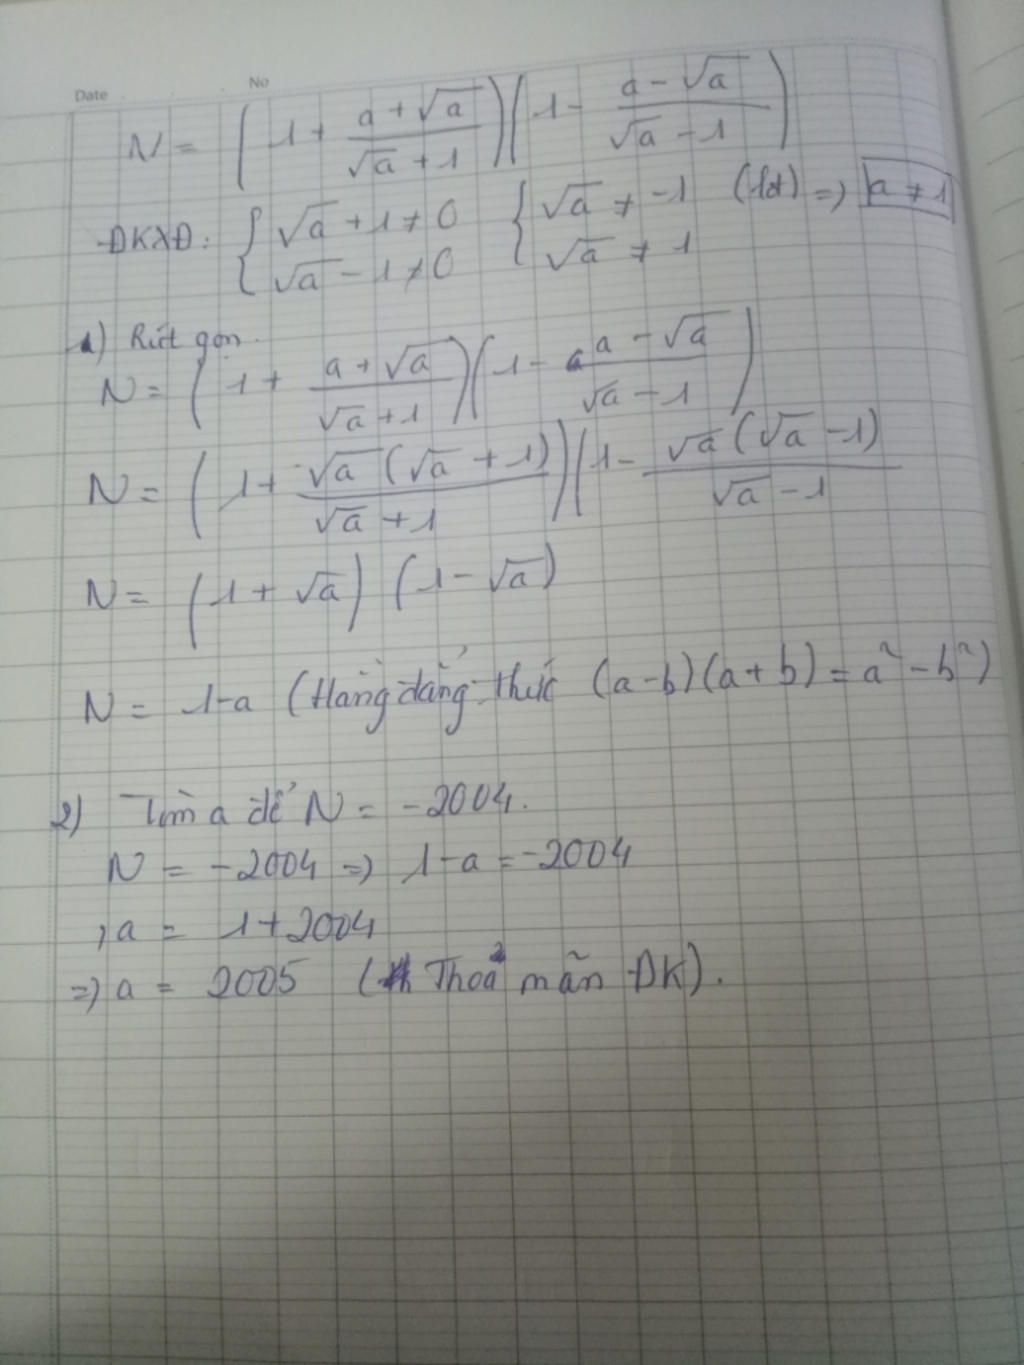 Date No
N = (1 + (a + √a)/(√a + 1))(1 - (a - √a)/(√a - 1))
ĐKXĐ: { √a + 1 ≠ 0 { √a ≠ -1 (lđ) => a ≠ 1
√a - 1 ≠ 0 √a ≠ 1
1) Rút gọn
N = (1 + (a + √a)/(√a + 1))(1 - (a - √a)/(√a - 1))
N = (1 + √a(√a + 1)/(√a + 1))(1 - √a(√a - 1)/(√a - 1))
N = (1 + √a)(1 - √a)
N = 1-a (Hằng đẳng thức (a-b)(a+b) = a² - b²)
2) Tìm a để N = -2004.
N = -2004 => 1-a = -2004
, a = 1+2004
=> a = 2005 (Thoả mãn ĐK).